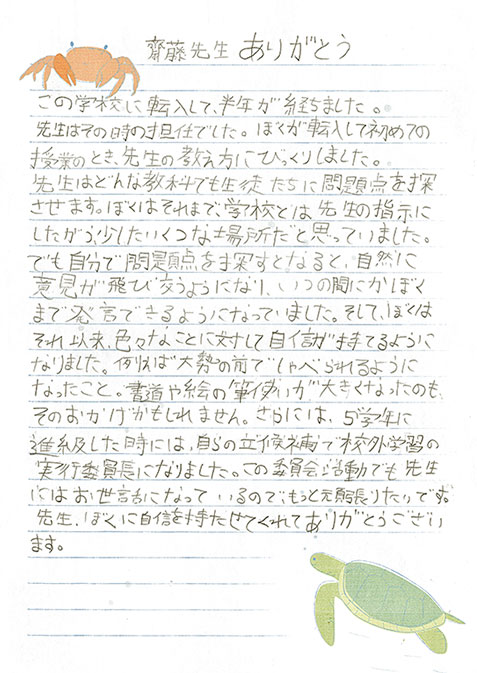 齋藤先生 ありがとう
この学校に転入して、半年が経ちました。
先生はその時の担任でした。ぼくが転入して初めての
授業のとき、先生の教え方にびっくりしました。
先生はどんな教科でも生徒たちに問題点を探
させます。ぼくはそれまで、学校とは先生の指示に
したがう、少したいくつな場所だと思っていました。
でも自分で問題点を探すとなると、自然に
意見が飛び交うようになり、いつの間にかぼく
まで発言できるようになっていました。そして、ぼくは
それ以来、色々なことに対して自信が持てるように
なりました。例えば大勢の前でしゃべられるように
なったこと。書道や絵の筆使いが大きくなったのも、
そのおかげかもしれません。さらには、5学年に
進級した時には、自らの立候補で校外学習の
実行委員長になりました。この委員会活動でも先生
にはお世話になっているので、もっと頑張りたいです。
先生、ぼくに自信を持たせてくれてありがとうござい
ます。